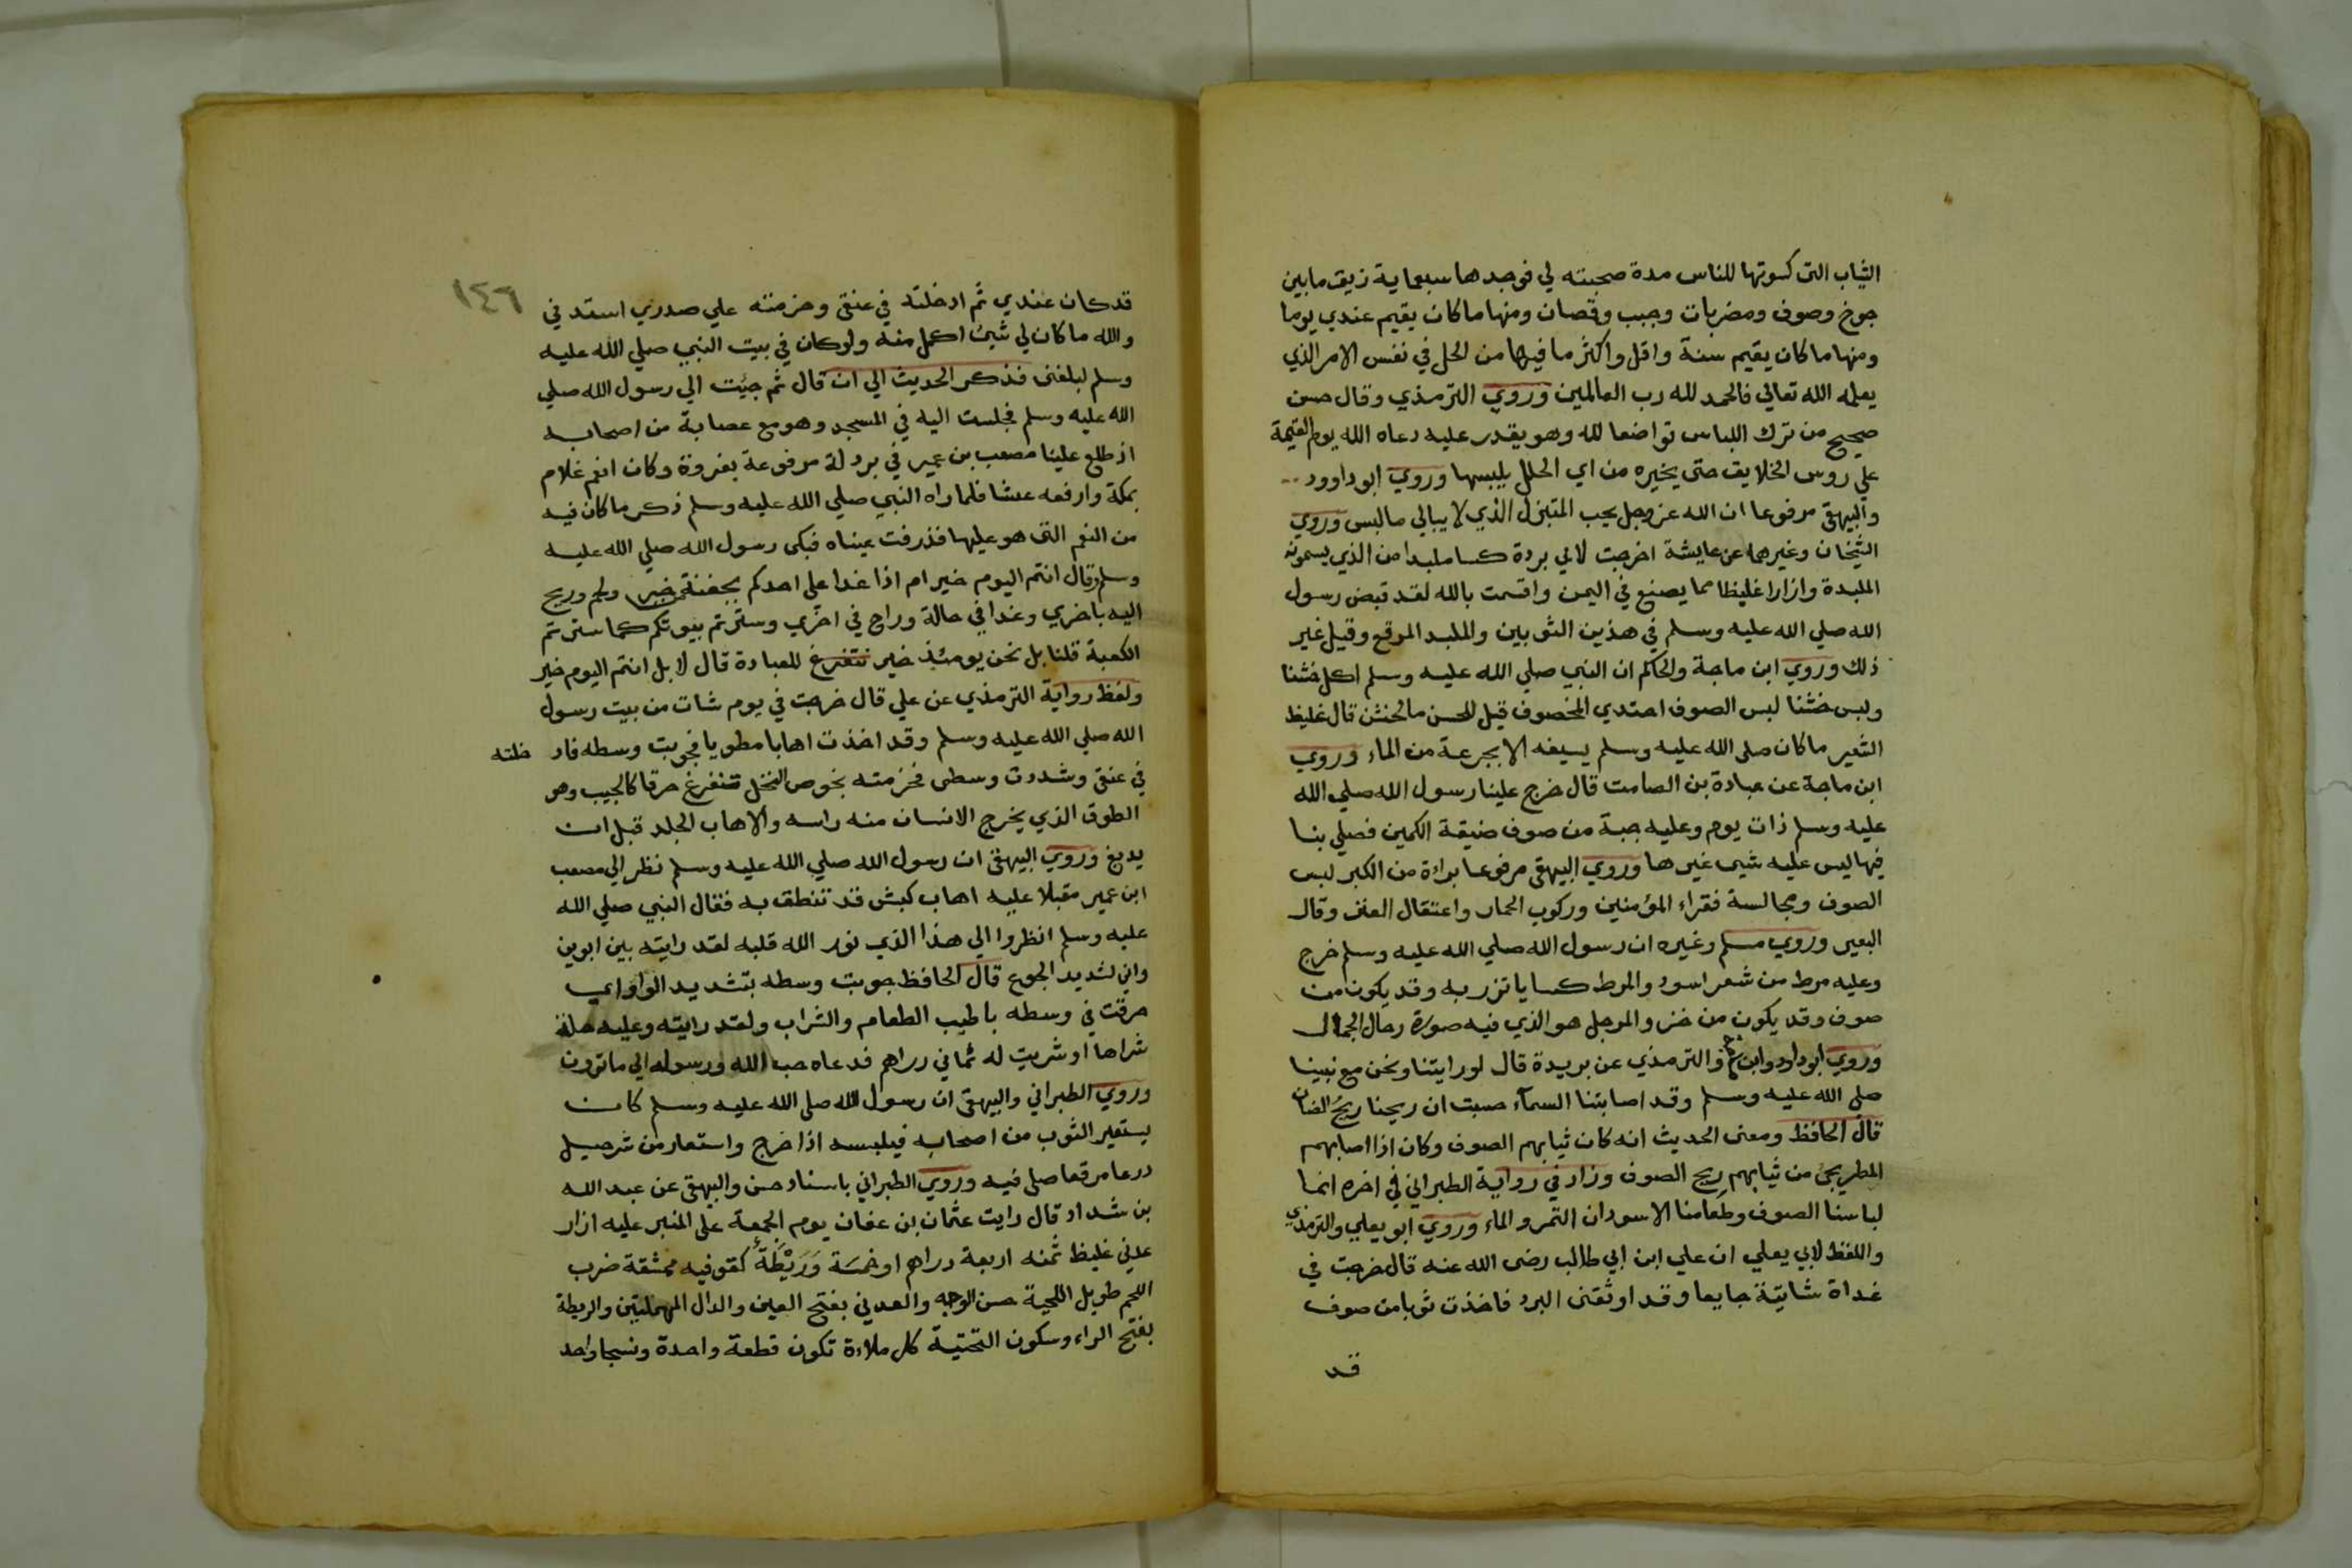 الثياب التى كسوتها للناس مدة صحبته لي فوجدها سبعماية زيق مابين
جوخ وصوف ومضربات وجبب وقمصان ومنها ماكان يقيم عندي يوما
ومنها ماكان يقيم سنة واقل واكثر ما فيها من الحل في نفس الامر الذي
يعلمه الله تعالي فالحمد لله رب العالمين وروي الترمذي وقال حسن
صحيح من ترك اللباس تواضعا لله وهو يقدر عليه دعاه الله يوم القيمة
علي روس الخلايق حتى يخيره من اي الحلل يلبسها وروي ابو داوود
والبيهقى مرفوعا ان الله عز وجل يحب المتبذل الذي لا يبالي مالبس وروي
الشيخان وغيرهما عن عايشة اخرجت لابي بردة كساملبدا من الذي يسمونه
الملبدة وازارا غليظا مما يصنع في اليمن واقسمت بالله لقد قبض رسول
الله صلي الله عليه وسلم في هذين الثوبين والملبد المرقع وقيل غير
ذلك وروي ابن ماجة والحاكم ان النبي صلي الله عليه وسلم اكل خشنا
ولبس خشنا لبس الصوف احتدي المخصوف قيل للحسن مالخشن قال غليظ
الشعير ماكان صلى الله عليه وسلم يسيغه الا بجرعة من الماء وروي
ابن ماجة عن عبادة بن الصامت قال خرج علينا رسول الله صلي الله
عليه وسلم ذات يوم وعليه جبة من صوف ضيقة الكمين فصلي بنا
فيها ليس عليه شي غيرها وروي البيهقى مرفوعا براءة من الكبر لبس
الصوف ومجالسة فقراء المؤمنين وركوب الحمار واعتقال العنز وقال
البعير وروي مسلم وغيره ان رسول الله صلي الله عليه وسلم خرج
وعليه مرط من شعر اسود والمرط كسا ياتزر به وقد يكون من
صوف وقد يكون من خز والمرحل هو الذي فيه صورة رحال الجمال
وروي ابو داود وابن والترمذي عن بريدة قال لو رايتنا ونحن مع نبينا
صلي الله عليه وسلم وقد اصابتنا السمآء حسبت ان ريحنا ريح الضان
قال الحافظ ومعنى الحديث انه كان ثيابهم الصوف وكان اذا اصابهم
المطر يجئ من ثيابهم ريح الصوف وزاد في رواية الطبراني في اخره انما
لباسنا الصوف وطعامنا الاسودان التمر والماء وروي ابو يعلي والترمذي
واللفظ لابي يعلي ان علي ابن ابي طالب رضى الله عنه قال خرجت في
غداة شاتية جايعا وقد اوثقنى البرد فاخذت ثوبا من صوف
قد
١٤٦
قد كان عندي ثم ادخلته في عنقى وحزمته علي صدري استد في
والله ماكان لي شئ اكل منه ولوكان في بيت النبي صلي الله عليه
وسلم لبلغنى فذكر الحديث الي ان قال ثم جيئت الي رسول الله صلي
الله عليه وسلم فجلست اليه في المسجد وهو مع عصابة من اصحابه
اذ طلع علينا مصعب بن عمير في بردة له مرقوعة بفروة وكان انعم غلام
بمكة وارفعه عيشا فلما راه النبي صلي الله عليه وسلم ذكر ماكان فيه
من النعم التى هو عليها فذرفت عيناه فبكى رسول الله صلي الله عليه
وسلم وقال انتم اليوم خير ام اذا غدا علي احدكم بجفنة خبر ولحم وريح
اليه باخري وغدا في حالة وراح في اخري وسترتم بيوتكم كما سترتم
الكعبة قلنا بل نحن يومئذ خير نتفرغ للعبادة قال لا بل انتم اليوم خير
ولفظ رواية الترمذي عن علي قال خرجت في يوم شات من بيت رسول
الله صلي الله عليه وسلم وقد اخذت اهابا مطويا فجوبت وسطه فاد خلته
في عنقى وشددت وسطى فحزمته بخوص النخل حرقا كالجيب وهو
الطوق الذي يخرج الانسان منه راسه والاهاب الجلد قبل ان
يدبغ وروي البيهقى ان رسول الله صلي الله عليه وسلم نظر الي مصعب
ابن عمير مقبلا عليه اهاب كبش قد تنطق به فقال النبي صلي الله
عليه وسلم انظروا الي هذا الذي نور الله قلبه لقد رايته بين ابوين
واني لشديد الجوع قال الحافظ جوبت وسطه بتشديد الواو اي
حرقت في وسطه باطيب الطعام والشراب ولقد رايته وعليه حلة
شراها او شريت له ثماني دراهم فدعاه حب الله ورسوله الي ماترون
وروي الطبراني والبيهقى ان رسول الله صلي الله عليه وسلم كان
يستعير الثوب من اصحابه فيلبسه اذا خرج واستعار من شرحبيل
درعا مرقعا صلى فيه وروي الطبراني باسناد حسن والبيهقى عن عبد الله
بن شداد قال رايت عثمان بن عفان يوم الجمعة على المنبر عليه ازار
عدني غليظ ثمنه اربعة دراهم او خمسة وَرَيْطَةٌ كفوفيه ممشقة ضرب
اللحم طويل اللحية حسن الوجه والعدني بفتح العين والدال المهملتين والريطة
بفتح الراء وسكون التحتية كل ملاءة تكون قطعة واحدة ونسجا واحد